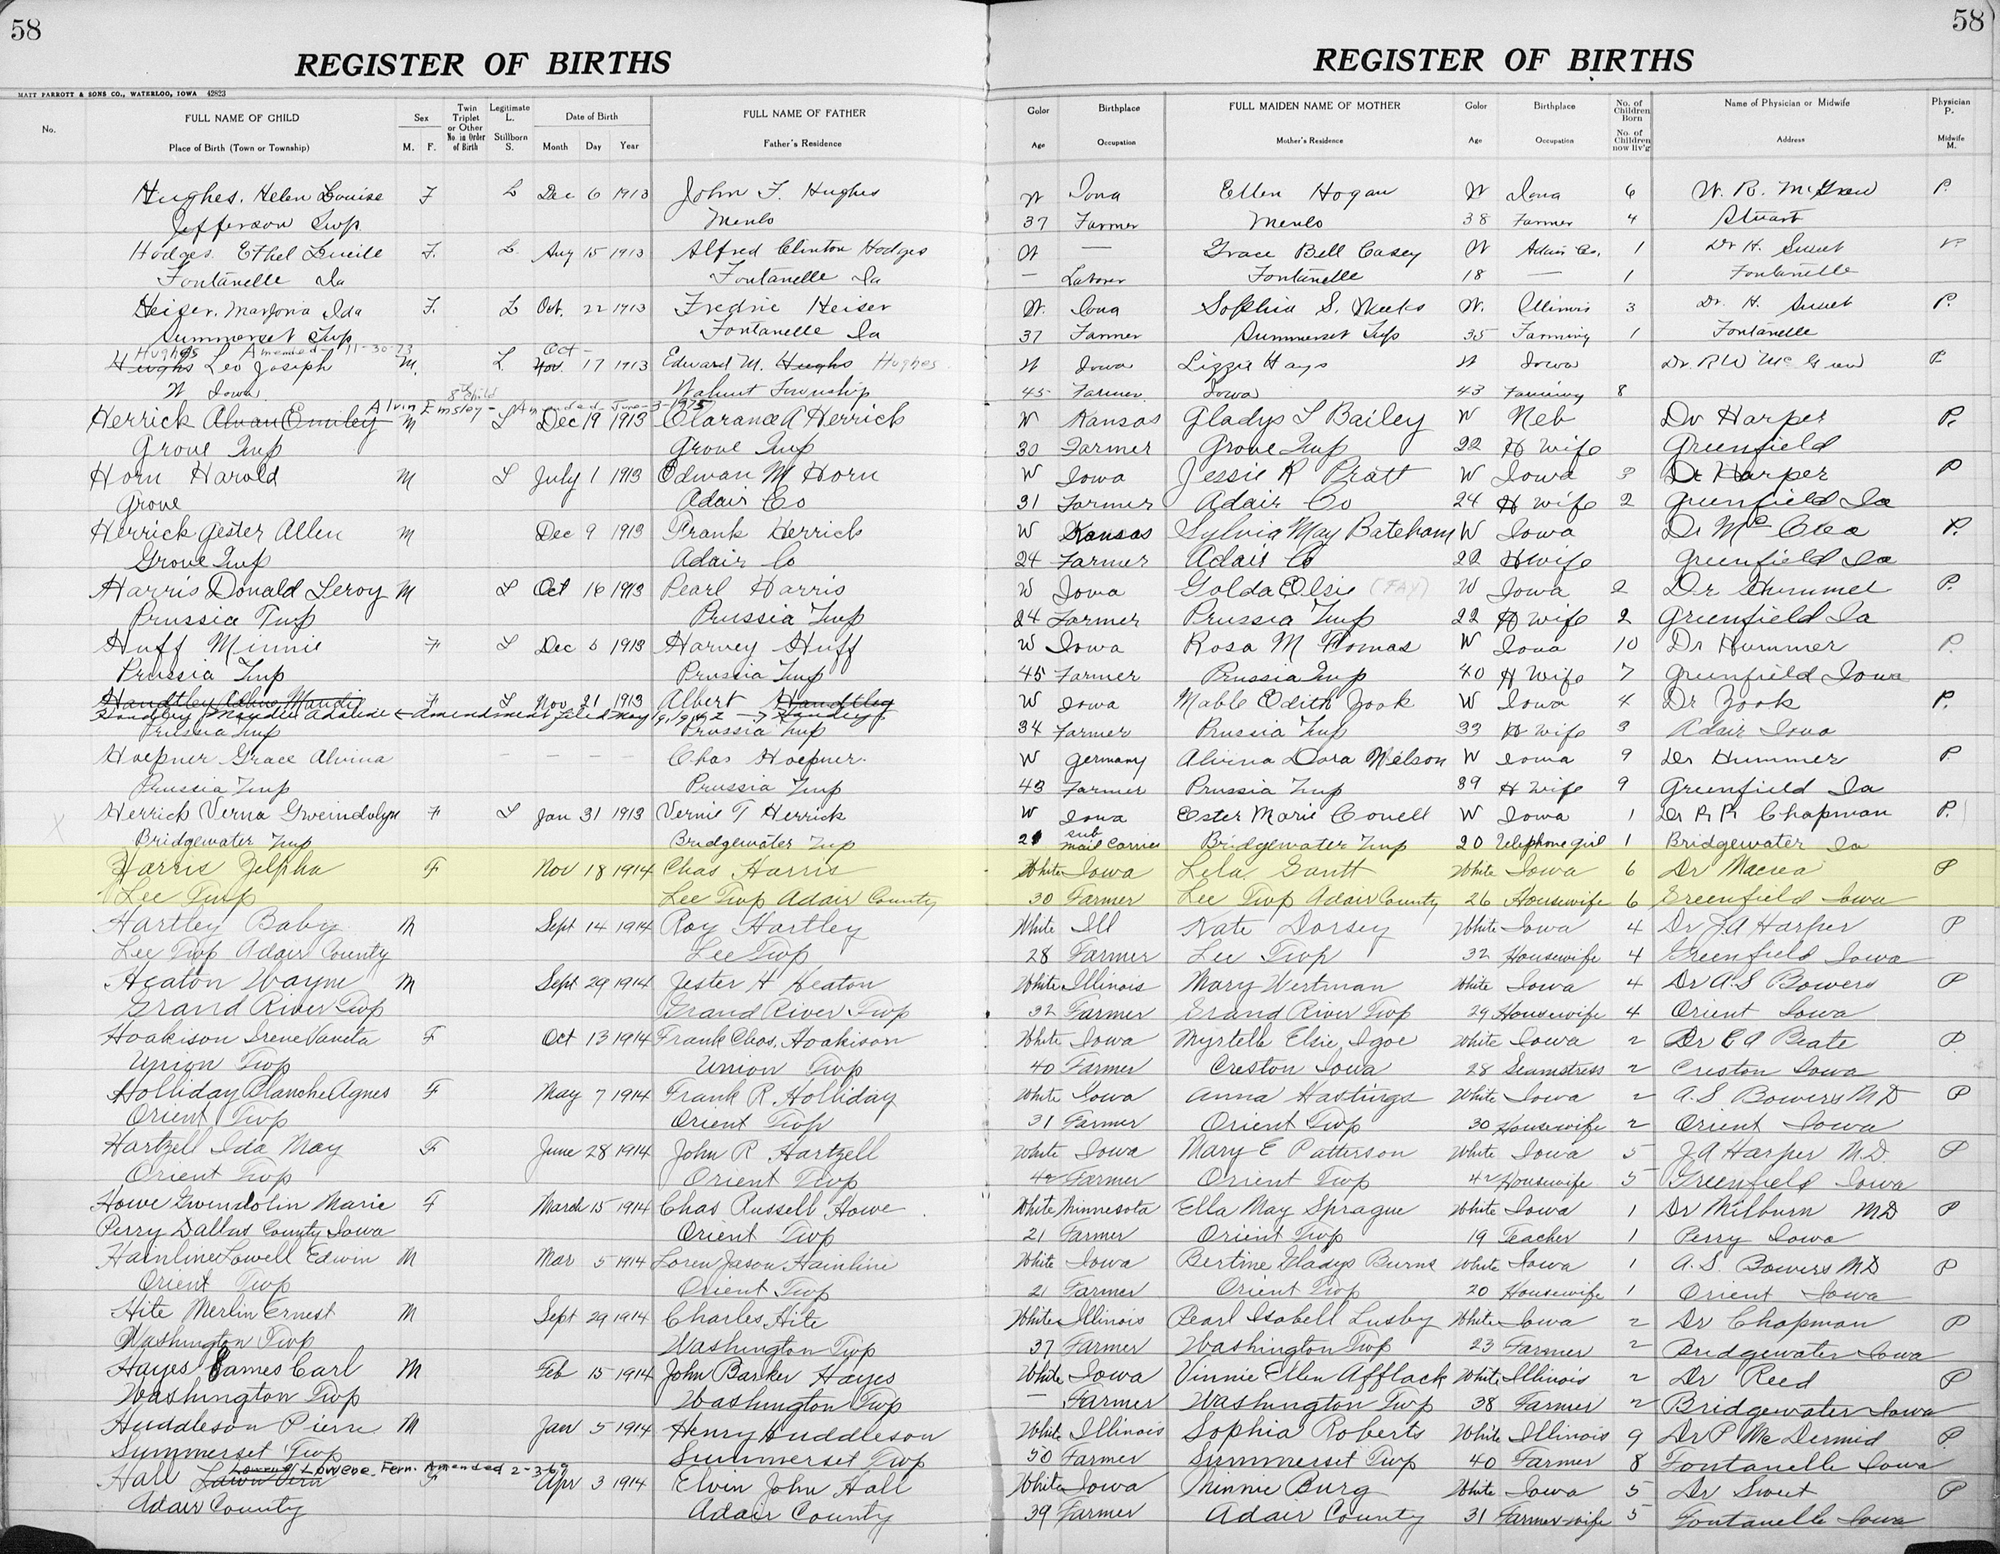 58
58
REGISTER OF BIRTHS
REGISTER OF BIRTHS
MATT PARROTT & SONS CO., WATERLOO, IOWA 42823
No. FULL NAME OF CHILD Sex Twin Triplet or Other No. in Order of Birth Legitimate L. Date of Birth FULL NAME OF FATHER Color Birthplace FULL MAIDEN NAME OF MOTHER Color Birthplace No. of Children Born Name of Physician or Midwife Physician P.
Place of Birth (Town or Township) M. F. Stillborn S. Month Day Year Father's Residence Age Occupation Mother's Residence Age Occupation No. of Children now liv'g Address Midwife M.
Hughes, Helen Louise F L Dec 6 1913 John F. Hughes W Iowa Ellen Hogan W Iowa 6 W. R. McGrew P.
Jefferson Twp. Menlo 37 Farmer Menlo 38 Farmer 4 Stuart
Hodges Ethel Lucile F. L Aug 15 1913 Alfred Clinton Hodges W — Grace Bell Casey W Adair Co. 1 Dr H. Sweet P
Fontanelle Ia Fontanelle Ia — Laborer Fontanelle 18 — 1 Fontanelle
Heiser, Marjorie Ida F. L Oct. 22 1913 Fredric Heiser W. Iowa Sophia S. Meeks W. Illinois 3 Dr. H. Sweet P.
Summerset Twp Fontanelle Ia 37 Farmer Summerset Twp 35 Farming 1 Fontanelle
Hughes Amended 11-30-73 Oct-
Hughs Leo Joseph M. L Nov. 17 1913 Edward M. Hughs Hughes W Iowa Lizzie Hays W Iowa Dr. RW McGrew P
W Iowa 8th child Walnut Township 45 Farmer Iowa 43 Farming 8
Alvin Emsley - Amended - June-3-1975
Herrick Alvan Emiley M L Dec 19 1913 Clarance A Herrick W Kansas Gladys L Bailey W Neb Dr Harper P.
Grove Twp Grove Twp 30 Farmer Grove Twp 22 H wife Greenfield
Horn Harold M L July 1 1913 Edwan M Horn W Iowa Jessie R Pratt W Iowa 3 Dr Harper P
Grove Adair Co 31 Farmer Adair Co 24 H wife 2 Greenfield Ia
Herrick Jester Allen M Dec 9 1913 Frank Herrick W Kansas Sylvia May Bateham W Iowa Dr McCrea P.
Grove Twp Adair Co 24 Farmer Adair Co 22 H wife Greenfield Ia
Harris Donald Leroy M L Oct 16 1913 Pearl Harris W Iowa Golda Elsie (FAY) W Iowa 2 Dr Hummel P.
Prussia Twp Prussia Twp 24 Farmer Prussia Twp 22 H wife 2 Greenfield Ia
Huff Minnie F L Dec 6 1913 Harvey Huff W Iowa Rosa M Tomas W Iowa 10 Dr Hummer P.
Prussia Twp Prussia Twp 45 Farmer Prussia Twp 40 H Wife 7 Greenfield Iowa
Handtley Adline Mandie F L Nov 21 1913 Albert Handtley W Iowa Mable Edith Zook W Iowa 4 Dr Zook P.
Handley Maudie Adaline ← Amendment filed May 19, 1942 → Handley
Prussia Twp Prussia Twp 34 Farmer Prussia Twp 33 H Wife 3 Adair Iowa
Hoepner Grace Alvina — — — Chas Hoepner. W Germany Alvina Dora Nielson W Iowa 9 Dr Hummer P
Prussia Twp Prussia Twp 43 Farmer Prussia Twp 39 H Wife 9 Greenfield Ia
X Herrick Verna Gweindolyn F L Jan 31 1913 Vernie T Herrick W Iowa Ester Marie Covell W Iowa 1 Dr R R Chapman P.
Bridgewater Twp Bridgewater Twp 21 sub mail carrier Bridgewater Twp 20 Telephone girl 1 Bridgewater Ia
Harris Zelpha F Nov 18 1914 Chas Harris White Iowa Lela Gantt White Iowa 6 Dr Macrea P
Lee Twp Lee Twp Adair County 30 Farmer Lee Twp Adair County 26 Housewife 6 Greenfield Iowa
Hartley Baby M Sept 14 1914 Roy Hartley White Ill Kate Dorsey White Iowa 4 Dr J.A Harper P
Lee Twp Adair County Lee Twp 28 Farmer Lee Twp 32 Housewife 4 Greenfield Iowa
Heaton Wayne M Sept 29 1914 Jester H Heaton White Illinois Mary Wertman White Iowa 4 Dr A.S Bowers P
Grand River Twp Grand River Twp 32 Farmer Grand River Twp 29 Housewife 4 Orient Iowa
Hoakison Irene Vaneta F Oct 13 1914 Frank Chas. Hoakison White Iowa Myrtelle Elsie Igoe White Iowa 2 Dr E A Beate P
Union Twp Union Twp 40 Farmer Creston Iowa 28 Seamstress 2 Creston Iowa
Holliday Blanche Agnes F May 7 1914 Frank R. Holliday White Iowa Anna Hastings White Iowa 2 A.S Bowers M D P
Orient Twp Orient Twp 31 Farmer Orient Twp 30 Housewife 2 Orient Iowa
Hartzell Ida May F June 28 1914 John R Hartzell White Iowa Mary E Patterson White Iowa 5 J A Harper M.D. P
Orient Twp Orient Twp 42 Farmer Orient Twp 42 Housewife 5 Greenfield Iowa
Howe Gwendolin Marie F March 15 1914 Chas Russell Howe White Minnesota Ella May Sprague White Iowa 1 Dr Milburn MD P
Perry Dallas County Iowa Orient Twp 21 Farmer Orient Twp 19 Teacher 1 Perry Iowa
Hainline Lowell Edwin M Mar 5 1914 Loren Jason Hainline White Iowa Bertine Gladys Burns White Iowa 1 A.S. Bowers MD P
Orient Twp Orient Twp 21 Farmer Orient Twp 20 Housewife 1 Orient Iowa
Hite Merlin Ernest M Sept 29 1914 Charles Hite White Illinois Pearl Isabell Lusby White Iowa 2 Dr Chapman P
Washington Twp Washington Twp 37 Farmer Washington Twp 23 Farmer 2 Bridgewater Iowa
Hayes James Carl M Feb 15 1914 John Barker Hayes White Iowa Vinnie Ellen Afflack White Illinois 2 Dr Reed P
Washington Twp Washington Twp — Farmer Washington Twp 38 Farmer 2 Bridgewater Iowa
Huddleson Pierre M Jan 5 1914 Henry Huddleson White Illinois Sophia Roberts White Illinois 9 Dr P McDermid P.
Summerset Twp Summerset Twp 50 Farmer Summerset Twp 40 Farmer 8 Fontanelle Iowa
Lowene Fern. Amended 2-3-69
Hall F Apr 3 1914 Elvin John Hall White Iowa Minnie Burg White Iowa 5 Dr Sweet P
Adair County Adair County 39 Farmer Adair County 31 Farmer-wife 5 Fontanelle Iowa